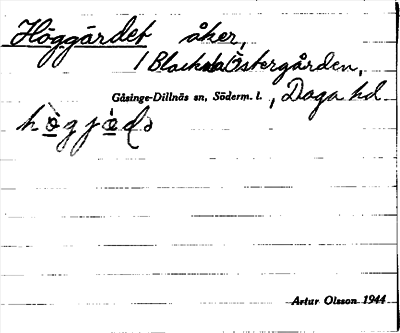 Höggärdet åker,
/ Blacksta Östergården,
Gåsinge-Dillnäs sn, Söderm. l., Daga hd
Artur Olsson 1944